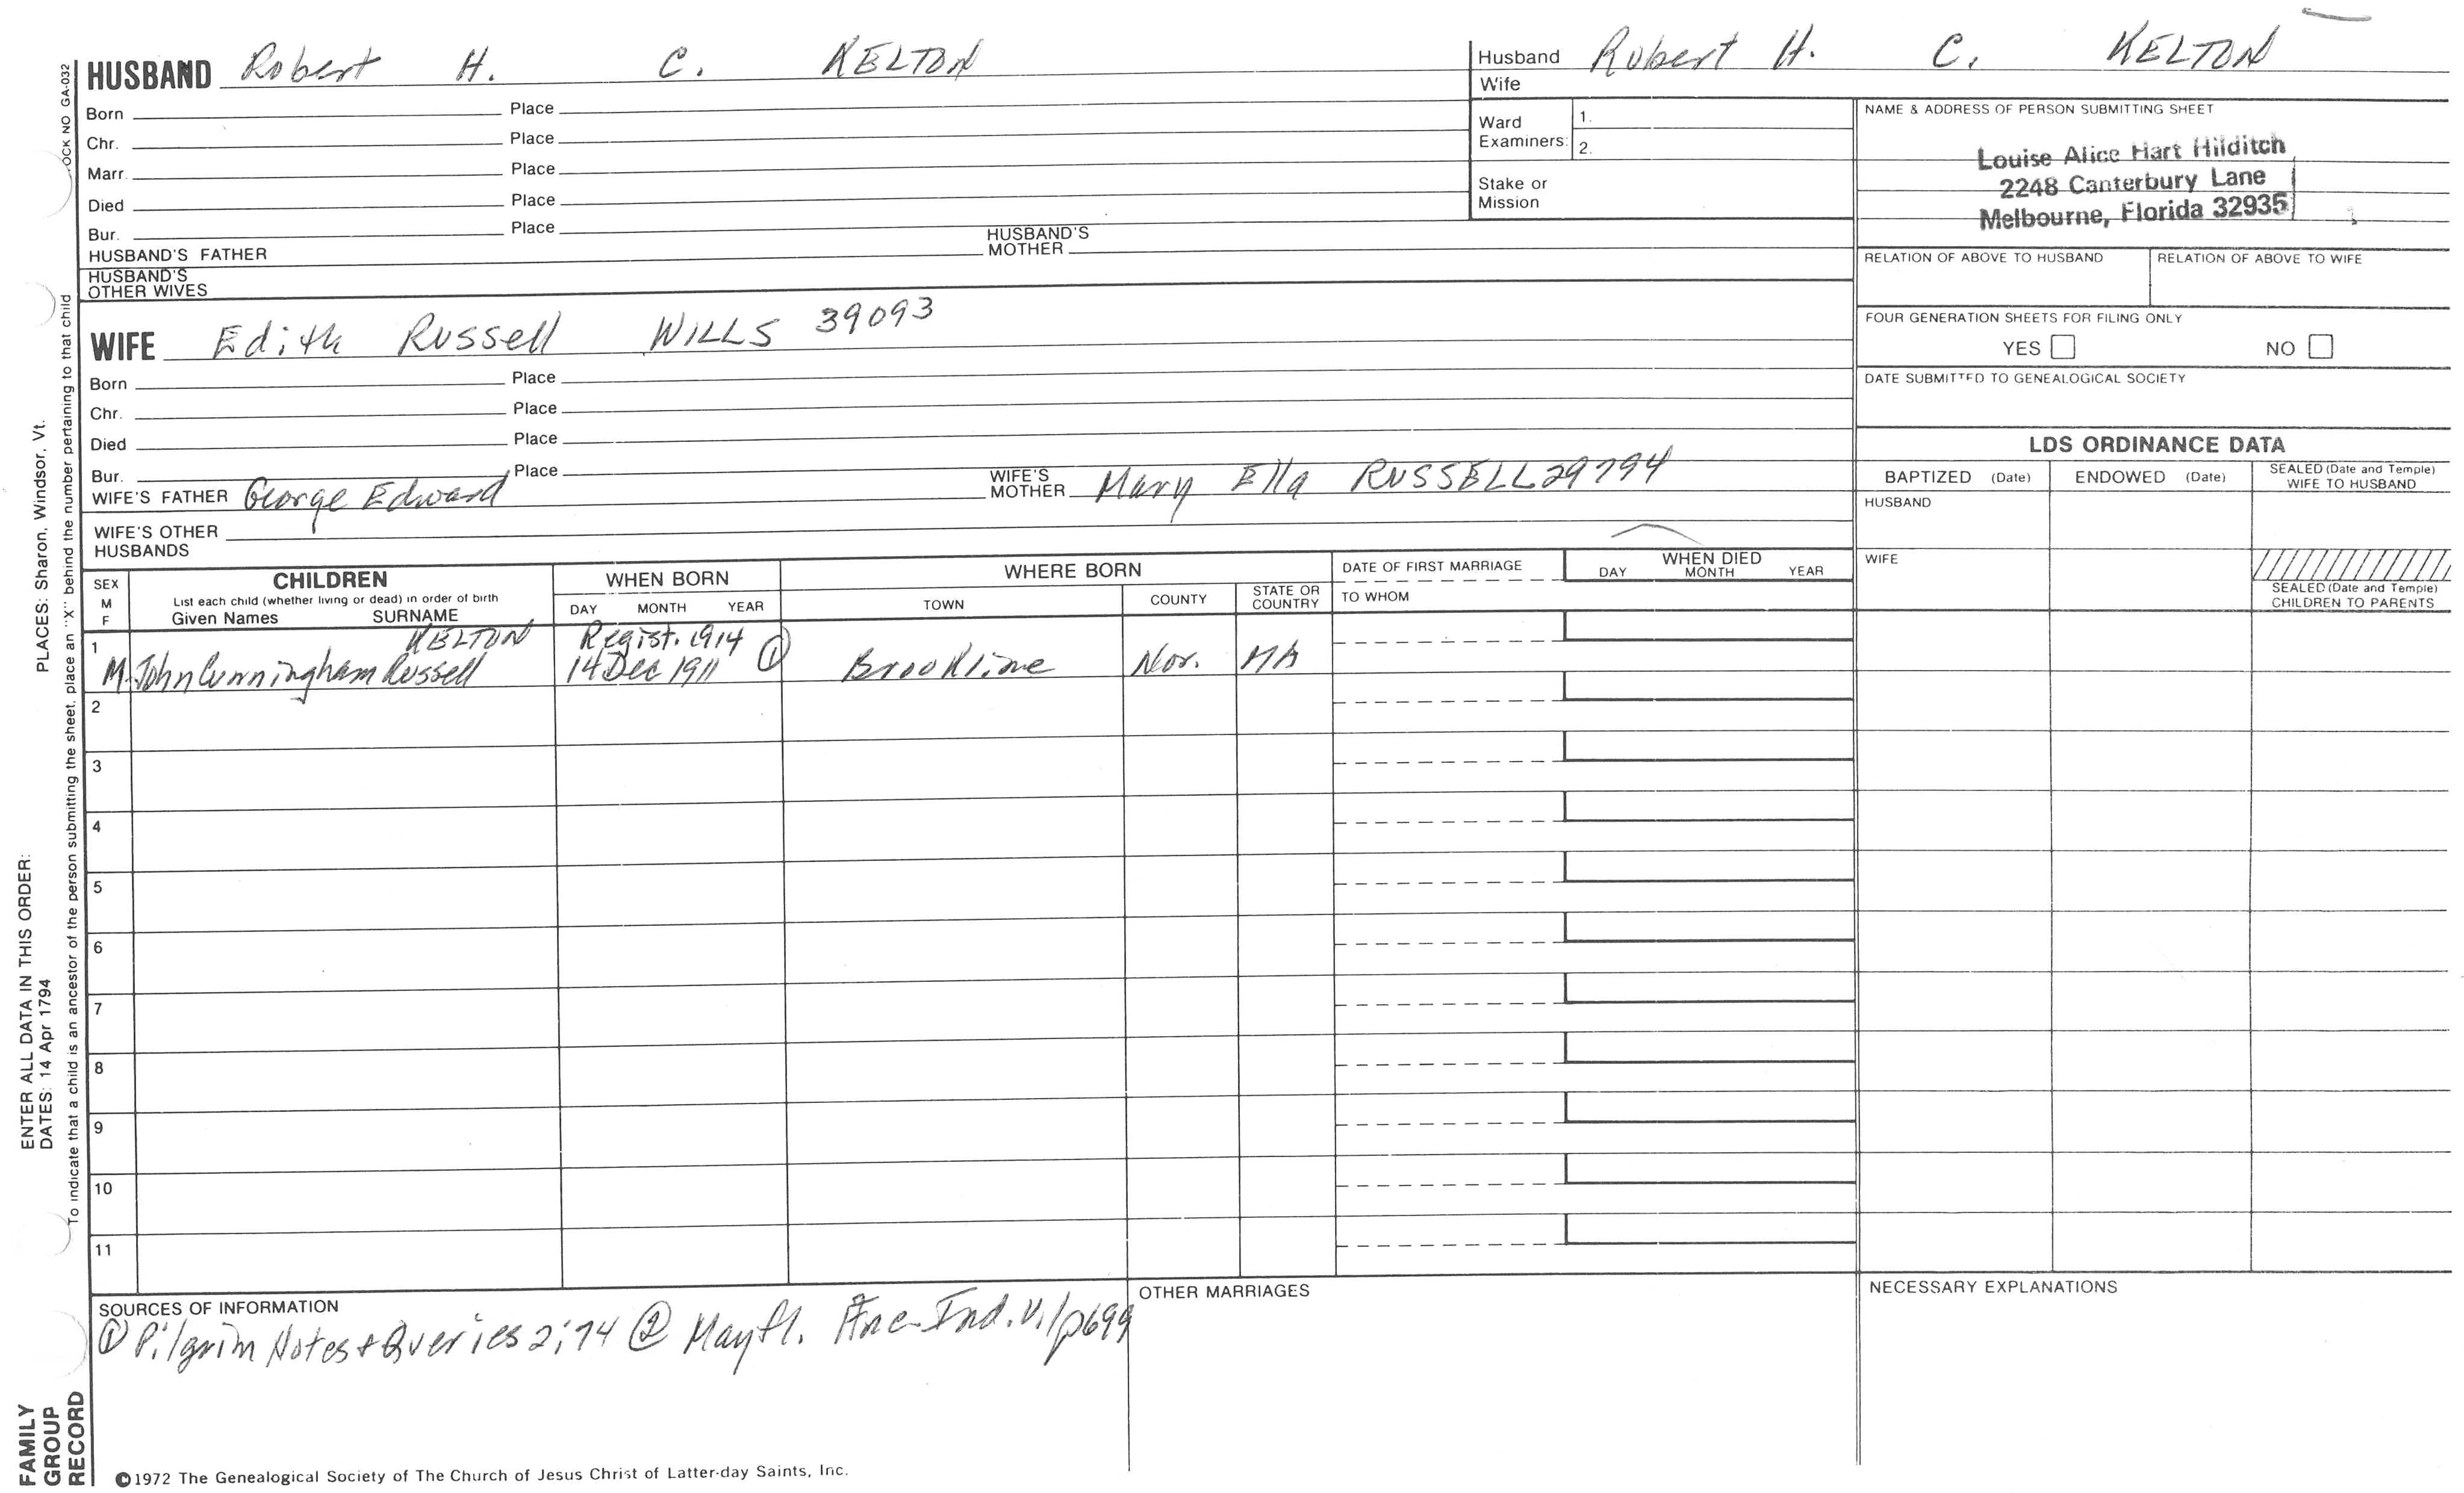 HUSBAND Robert H. C. KELTON
Born Place
Chr. Place
Marr. Place
Died Place
Bur. Place
HUSBAND'S FATHER HUSBAND'S MOTHER
HUSBAND'S OTHER WIVES
WIFE Edith Russell WILLS 39093
Born Place
Chr. Place
Died Place
Bur. Place
WIFE'S FATHER George Edward WIFE'S MOTHER Mary Ella RUSSELL 29794
WIFE'S OTHER HUSBANDS
Husband Robert H. C. KELTON
Wife
Ward Examiners: 1. 2.
Stake or Mission
NAME & ADDRESS OF PERSON SUBMITTING SHEET
Louise Alice Hart Hilditch
2248 Canterbury Lane
Melbourne, Florida 32935
RELATION OF ABOVE TO HUSBAND RELATION OF ABOVE TO WIFE
FOUR GENERATION SHEETS FOR FILING ONLY
YES NO
DATE SUBMITTED TO GENEALOGICAL SOCIETY
LDS ORDINANCE DATA
BAPTIZED (Date) ENDOWED (Date) SEALED (Date and Temple) WIFE TO HUSBAND
HUSBAND
WIFE
SEALED (Date and Temple) CHILDREN TO PARENTS
SEX M F
CHILDREN
List each child (whether living or dead) in order of birth
Given Names SURNAME
WHEN BORN
DAY MONTH YEAR
WHERE BORN
TOWN COUNTY STATE OR COUNTRY
DATE OF FIRST MARRIAGE
TO WHOM
WHEN DIED
DAY MONTH YEAR
1 KELTON Regist. 1914 ①
M John Cunningham Russell 14 Dec 1911 Brookline Nor. MA
2
3
4
5
6
7
8
9
10
11
SOURCES OF INFORMATION
① Pilgrim Notes + Queries 2:74 ② Mayfl. Anc. Ind. V.1 p699
OTHER MARRIAGES
NECESSARY EXPLANATIONS
©1972 The Genealogical Society of The Church of Jesus Christ of Latter-day Saints, Inc.
FAMILY
GROUP
RECORD
ENTER ALL DATA IN THIS ORDER:
DATES: 14 Apr 1794
PLACES: Sharon, Windsor, Vt.
To indicate that a child is an ancestor of the person submitting the sheet, place an "X" behind the number pertaining to that child
OCK NO GA-032